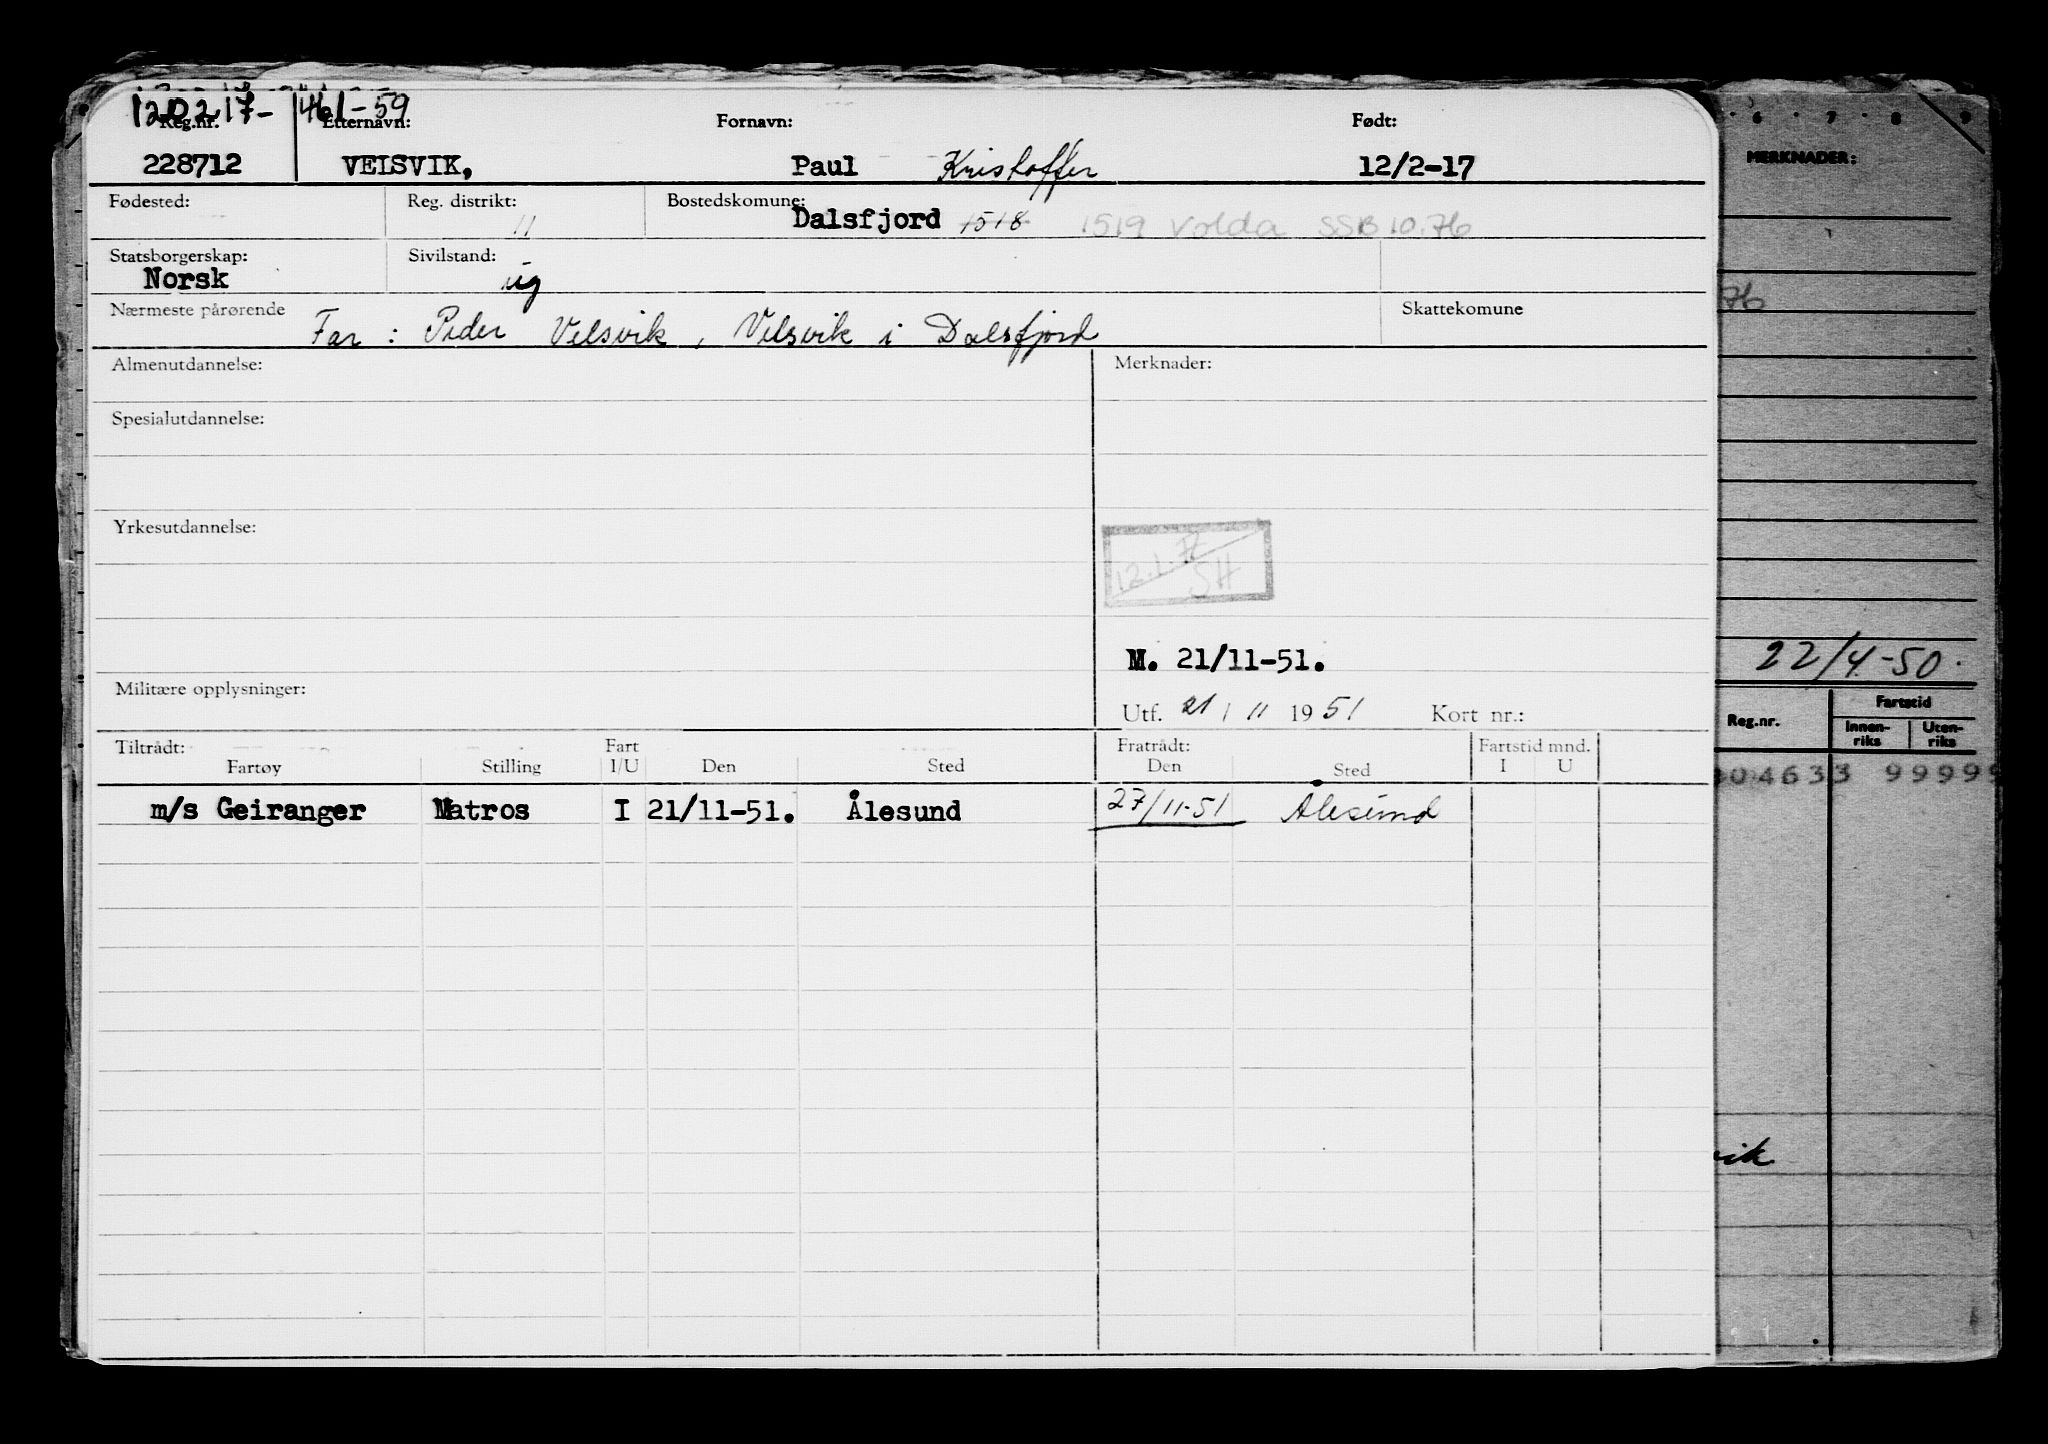 120217- 461-59
Reg.nr. Etternavn: Fornavn: Født:
228712 VELSVIK, Paul Kristoffer 12/2-17
Fødested: Reg. distrikt: 11 Bostedskomune: Dalsfjord 1518 1519 Volda SSB 10.76
Statsborgerskap: Norsk Sivilstand: ug
Nærmeste pårørende Far: Peder Velsvik, Velsvik i Dalsfjord Skattekomune
Almenutdannelse: Merknader:
Spesialutdannelse:
Yrkesutdannelse:
SH
M. 21/11-51.
Militære opplysninger:
Utf. 21 / 11 1951 Kort nr.:
Tiltrådt: Fart Fratrådt: Fartstid mnd.
Fartøy Stilling I/U Den Sted Den Sted I U
m/s Geiranger Matros I 21/11-51. Ålesund 27/11-51 Ålesund
6 7 8 9
MERKNADER:
76
22/4-50.
Reg.nr. Fartstid
Innen-riks Uten-riks
04633 9999
vik